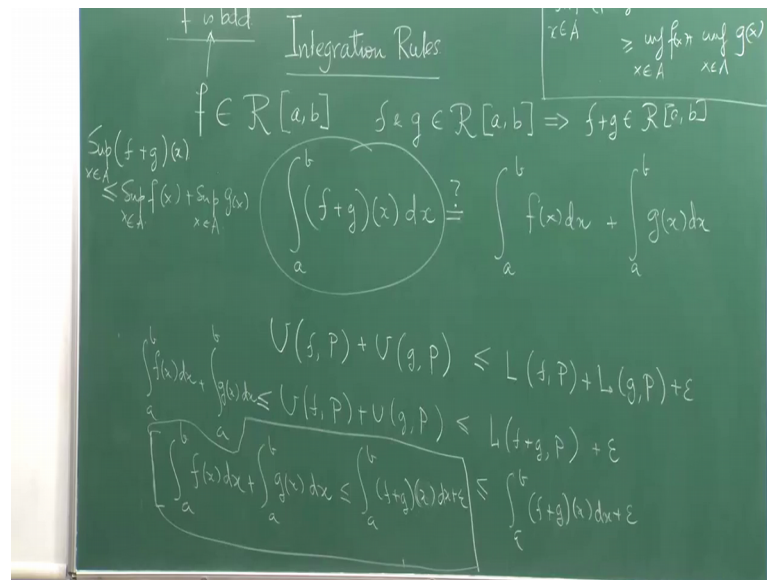 f is bdd
Integration Rules
x∈A
≥ inf f(x) + inf g(x)
x∈A x∈A
f ∈ R [a,b] f & g ∈ R [a,b] ⇒ f+g ∈ R [a,b]
Sup (f+g)(x)
x∈A
≤ Sup f(x) + Sup g(x)
x∈A x∈A
∫_a^b (f+g)(x) dx ≟ ∫_a^b f(x)dx + ∫_a^b g(x)dx
U(f,P) + U(g,P) ≤ L(f,P) + L(g,P) + ε
∫_a^b f(x)dx + ∫_a^b g(x)dx ≤ U(f,P) + U(g,P) ≤ L(f+g,P) + ε
∫_a^b f(x)dx + ∫_a^b g(x)dx ≤ ∫_a^b (f+g)(x)dx+ε ≤ ∫_a^b (f+g)(x)dx+ε